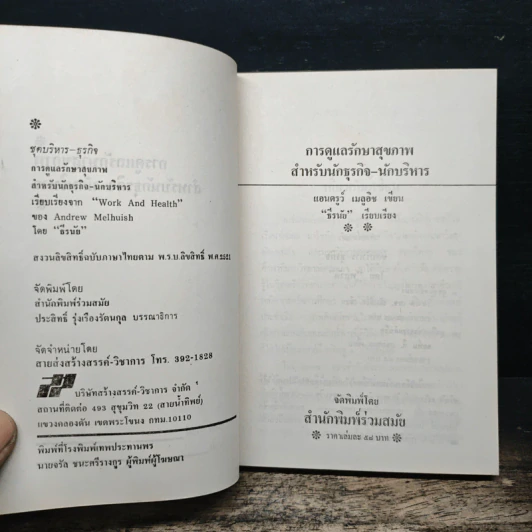 ชุดบริหาร-ธุรกิจ
การดูแลรักษาสุขภาพ
สำหรับนักธุรกิจ-นักบริหาร
เรียบเรียงจาก "Work And Health"
ของ Andrew Melhuish
โดย "ธีรนัย"
สงวนลิขสิทธิ์ฉบับภาษาไทยตาม พ.ร.บ.ลิขสิทธิ์ พ.ศ.2521
จัดพิมพ์โดย
สำนักพิมพ์ร่วมสมัย
ประสิทธิ์ รุ่งเรืองรัตนกุล บรรณาธิการ
จัดจำหน่ายโดย
สายส่งสร้างสรรค์-วิชาการ โทร. 392-1828
บริษัทสร้างสรรค์-วิชาการ จำกัด
สถานที่ติดต่อ 493 สุขุมวิท 22 (สายน้ำทิพย์)
แขวงคลองตัน เขตพระโขนง กทม.10110
พิมพ์ที่โรงพิมพ์เทพประทานพร
นายจรัล ชนะศรีรางกูร ผู้พิมพ์ผู้โฆษณา
การดูแลรักษาสุขภาพ
สำหรับนักธุรกิจ-นักบริหาร
แอนดรูว์ เมลฮูอิช เขียน
"ธีรนัย" เรียบเรียง
จัดพิมพ์โดย
สำนักพิมพ์ร่วมสมัย
ราคาเล่มละ ๕๘ บาท